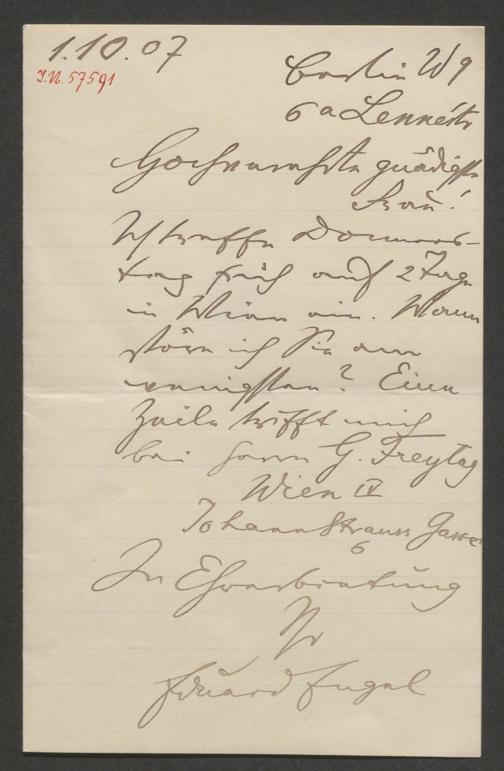 1.10.07
I.N. 57591
Berlin W 9
6a Lennéstr
Hochverehrte gnädigste
Frau!
Ich treffe Donners-
tag früh auf 2 Tage
in Wien ein. Wann
störe ich Sie am
wenigsten? Eine
Zeile trifft mich
bei Herrn G. Freytag
Wien IV
Johann Strauss Gasse
6
In Ehrerbietung
Ihr
Eduard Engel